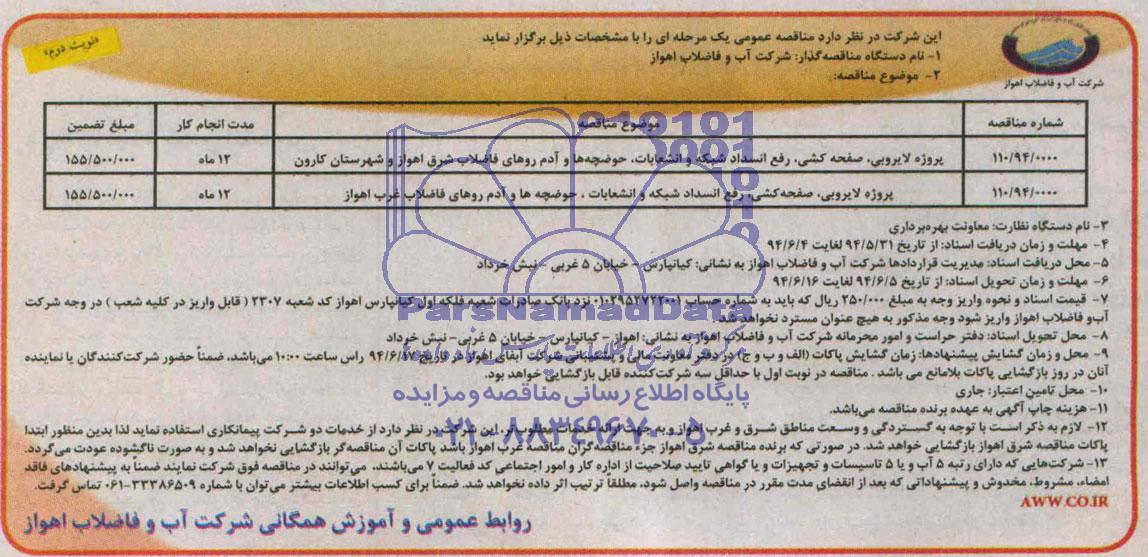 «نوبت دوم»
شرکت آب و فاضلاب اهواز
این شرکت در نظر دارد مناقصه عمومی یک مرحله ای را با مشخصات ذیل برگزار نماید
۱- نام دستگاه مناقصه‌گذار: شرکت آب و فاضلاب اهواز
۲- موضوع مناقصه:
شماره مناقصه موضوع مناقصه مدت انجام کار مبلغ تضمین
۱۱۰/۹۴/۰۰۰۰ پروژه لایروبی، صفحه کشی، رفع انسداد شبکه و انشعابات، حوضچه‌ها و آدم روهای فاضلاب شرق اهواز و شهرستان کارون ۱۲ ماه ۱۵۵/۵۰۰/۰۰۰
۱۱۰/۹۴/۰۰۰۰ پروژه لایروبی، صفحه‌کشی، رفع انسداد شبکه و انشعابات ، حوضچه ها و آدم روهای فاضلاب غرب اهواز ۱۲ ماه ۱۵۵/۵۰۰/۰۰۰
۳- نام دستگاه نظارت: معاونت بهره‌برداری
۴- مهلت و زمان دریافت اسناد: از تاریخ ۹۴/۵/۳۱ لغایت ۹۴/۶/۴
۵- محل دریافت اسناد: مدیریت قراردادها شرکت آب و فاضلاب اهواز به نشانی: کیانپارس - خیابان ۵ غربی - نبش خرداد
۶- مهلت و زمان تحویل اسناد: از تاریخ ۹۴/۶/۵ لغایت ۹۴/۶/۱۶
۷- قیمت اسناد و نحوه واریز وجه به مبلغ ۲۵۰/۰۰۰ ریال که باید به شماره حساب ۰۱۰۲۹۵۲۷۲۲۰۰۱ نزد بانک صادرات شعبه فلکه اول کیانپارس اهواز کد شعبه ۲۳۰۷ ( قابل واریز در کلیه شعب ) در وجه شرکت
آب‌و فاضلاب اهواز واریز شود وجه مذکور به هیچ عنوان مسترد نخواهد شد.
۸- محل تحویل اسناد: دفتر حراست و امور محرمانه شرکت آب و فاضلاب اهواز به نشانی: اهواز - کیانپارس - خیابان ۵ غربی- نبش خرداد
۹- محل و زمان گشایش پیشنهادها: زمان گشایش پاکات (الف و ب و ج) در دفتر معاونت مالی و پشتیبانی شرکت آبفای اهواز در تاریخ ۹۴/۶/۱۷ راس ساعت ۱۰:۰۰ می‌باشد، ضمناً حضور شرکت‌کنندگان یا نماینده
آنان در روز بازگشایی پاکات بلامانع می باشد . مناقصه در نوبت اول با حداقل سه شرکت‌کننده قابل بازگشایی خواهد بود.
۱۰- محل تامین اعتبار: جاری
۱۱- هزینه چاپ آگهی به عهده برنده مناقصه می‌باشد.
۱۲- لازم به ذکر است با توجه به گستردگی و وسعت مناطق شرق و غرب اهواز و به جهت ارائه خدمات مطلوب‌تر، این شرکت در نظر دارد از خدمات دو شرکت پیمانکاری استفاده نماید لذا بدین منظور ابتدا
پاکات مناقصه شرق اهواز بازگشایی خواهد شد. در صورتی که برنده مناقصه شرق اهواز جزء مناقصه‌گران مناقصه غرب اهواز باشد پاکات آن مناقصه‌گر بازگشایی نخواهد شد و به صورت ناگشوده عودت می‌گردد.
۱۳- شرکت‌هایی که دارای رتبه ۵ آب و یا ۵ تاسیسات و تجهیزات و یا گواهی تایید صلاحیت از اداره کار و امور اجتماعی کد فعالیت ۷ می‌باشند، می‌توانند در مناقصه فوق شرکت نمایند ضمناً به پیشنهادهای فاقد
امضاء، مشروط، مخدوش و پیشنهاداتی که بعد از انقضای مدت مقرر در مناقصه واصل شود، مطلقا ترتیب اثر داده نخواهد شد. ضمناً برای کسب اطلاعات بیشتر می‌توان با شماره ۳۳۳۸۶۵۰۹-۰۶۱ تماس گرفت.
AWW.CO.IR
روابط عمومی و آموزش همگانی شرکت آب و فاضلاب اهواز
ParsNamadData
پایگاه اطلاع رسانی مناقصه و مزایده
۰۲۱-۸۸۳۴۹۶۷۰-۵